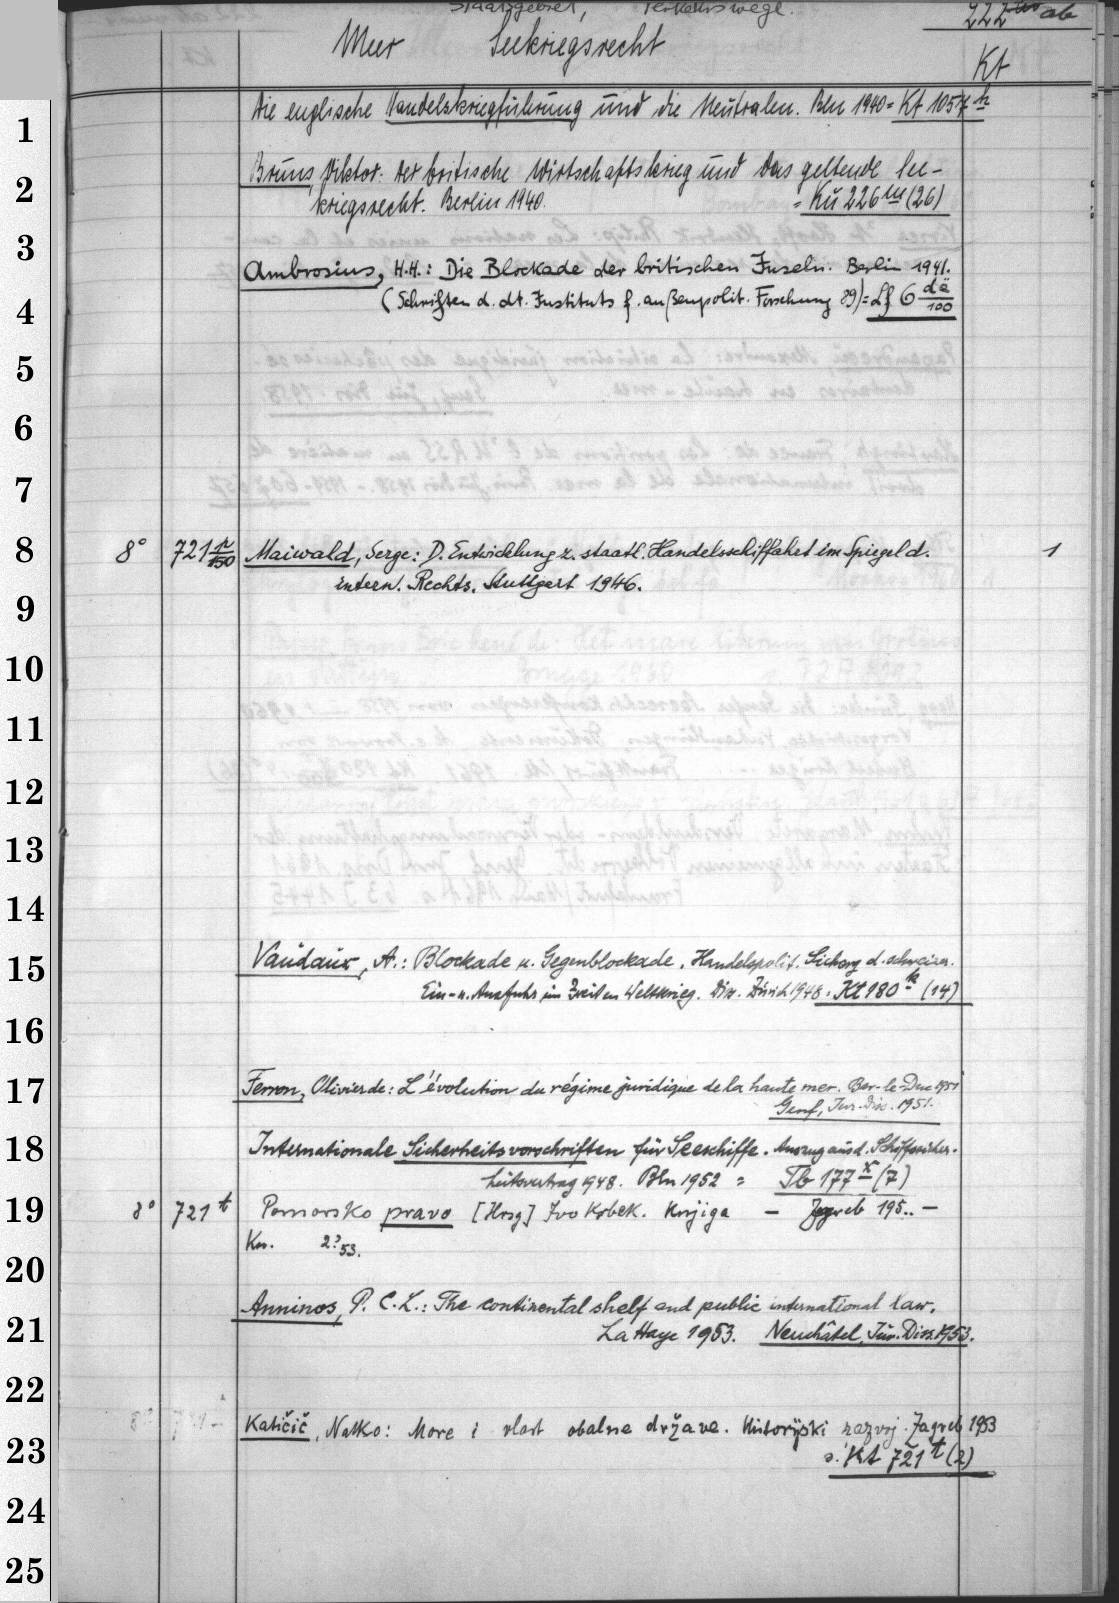 Staatsgebiet, Verkehrswege. 222 ab
Meer Seekriegsrecht Kt
1 Die englische Handelskriegführung und die Neutralen. Bln 1940 = Kt 1057
2 Bruns, Viktor: Der britische Wirtschaftskrieg und das geltende See-
kriegsrecht. Berlin 1940. = Kü 226 m (26)
3 Ambrosius, H.H.: Die Blockade der britischen Inseln. Berlin 1941.
4 (Schriften d. dt. Instituts f. außenpolit. Forschung 89) = Lf 6 dä/100
5
6
7
8 8° 721 n/150 Maiwald, Serge: D. Entwicklung z. staatl. Handelsschiffahrt im Spiegel d. 1
intern. Rechts. Stuttgart 1946.
9
10
11
12
13
14
15 Vaudaux, A.: Blockade u. Gegenblockade. Handelspolit. Sicherg d. schweizer.
Ein- u. Ausfuhr im Zweiten Weltkrieg. Diss. Zürich 1948. Kt 180 k (14)
16
17 Ferron, Olivier de: L'évolution du régime juridique de la haute mer. Bar-le-Duc 1951
Genf, Jur. Diss. 1951.
18 Internationale Sicherheitsvorschriften für Seeschiffe. Auszug aus d. Schiffssicher-
heitsvertrag 1948. Bln 1952 = Tb 177 x (7)
19 8° 721 t Pomorsko pravo [Hrsg] Ivo Krbek. Knjiga – Zagreb 195.. –
Kn. 2° 53.
20
Anninos, P. C. L.: The continental shelf and public international law.
21 La Haye 1953. Neuchâtel, Jur. Diss. 1953.
22
Katičić, Natko: More i vlast obalne države. Historijski razvoj. Zagreb 1953
23 s. Kt 721 t (2)
24
25